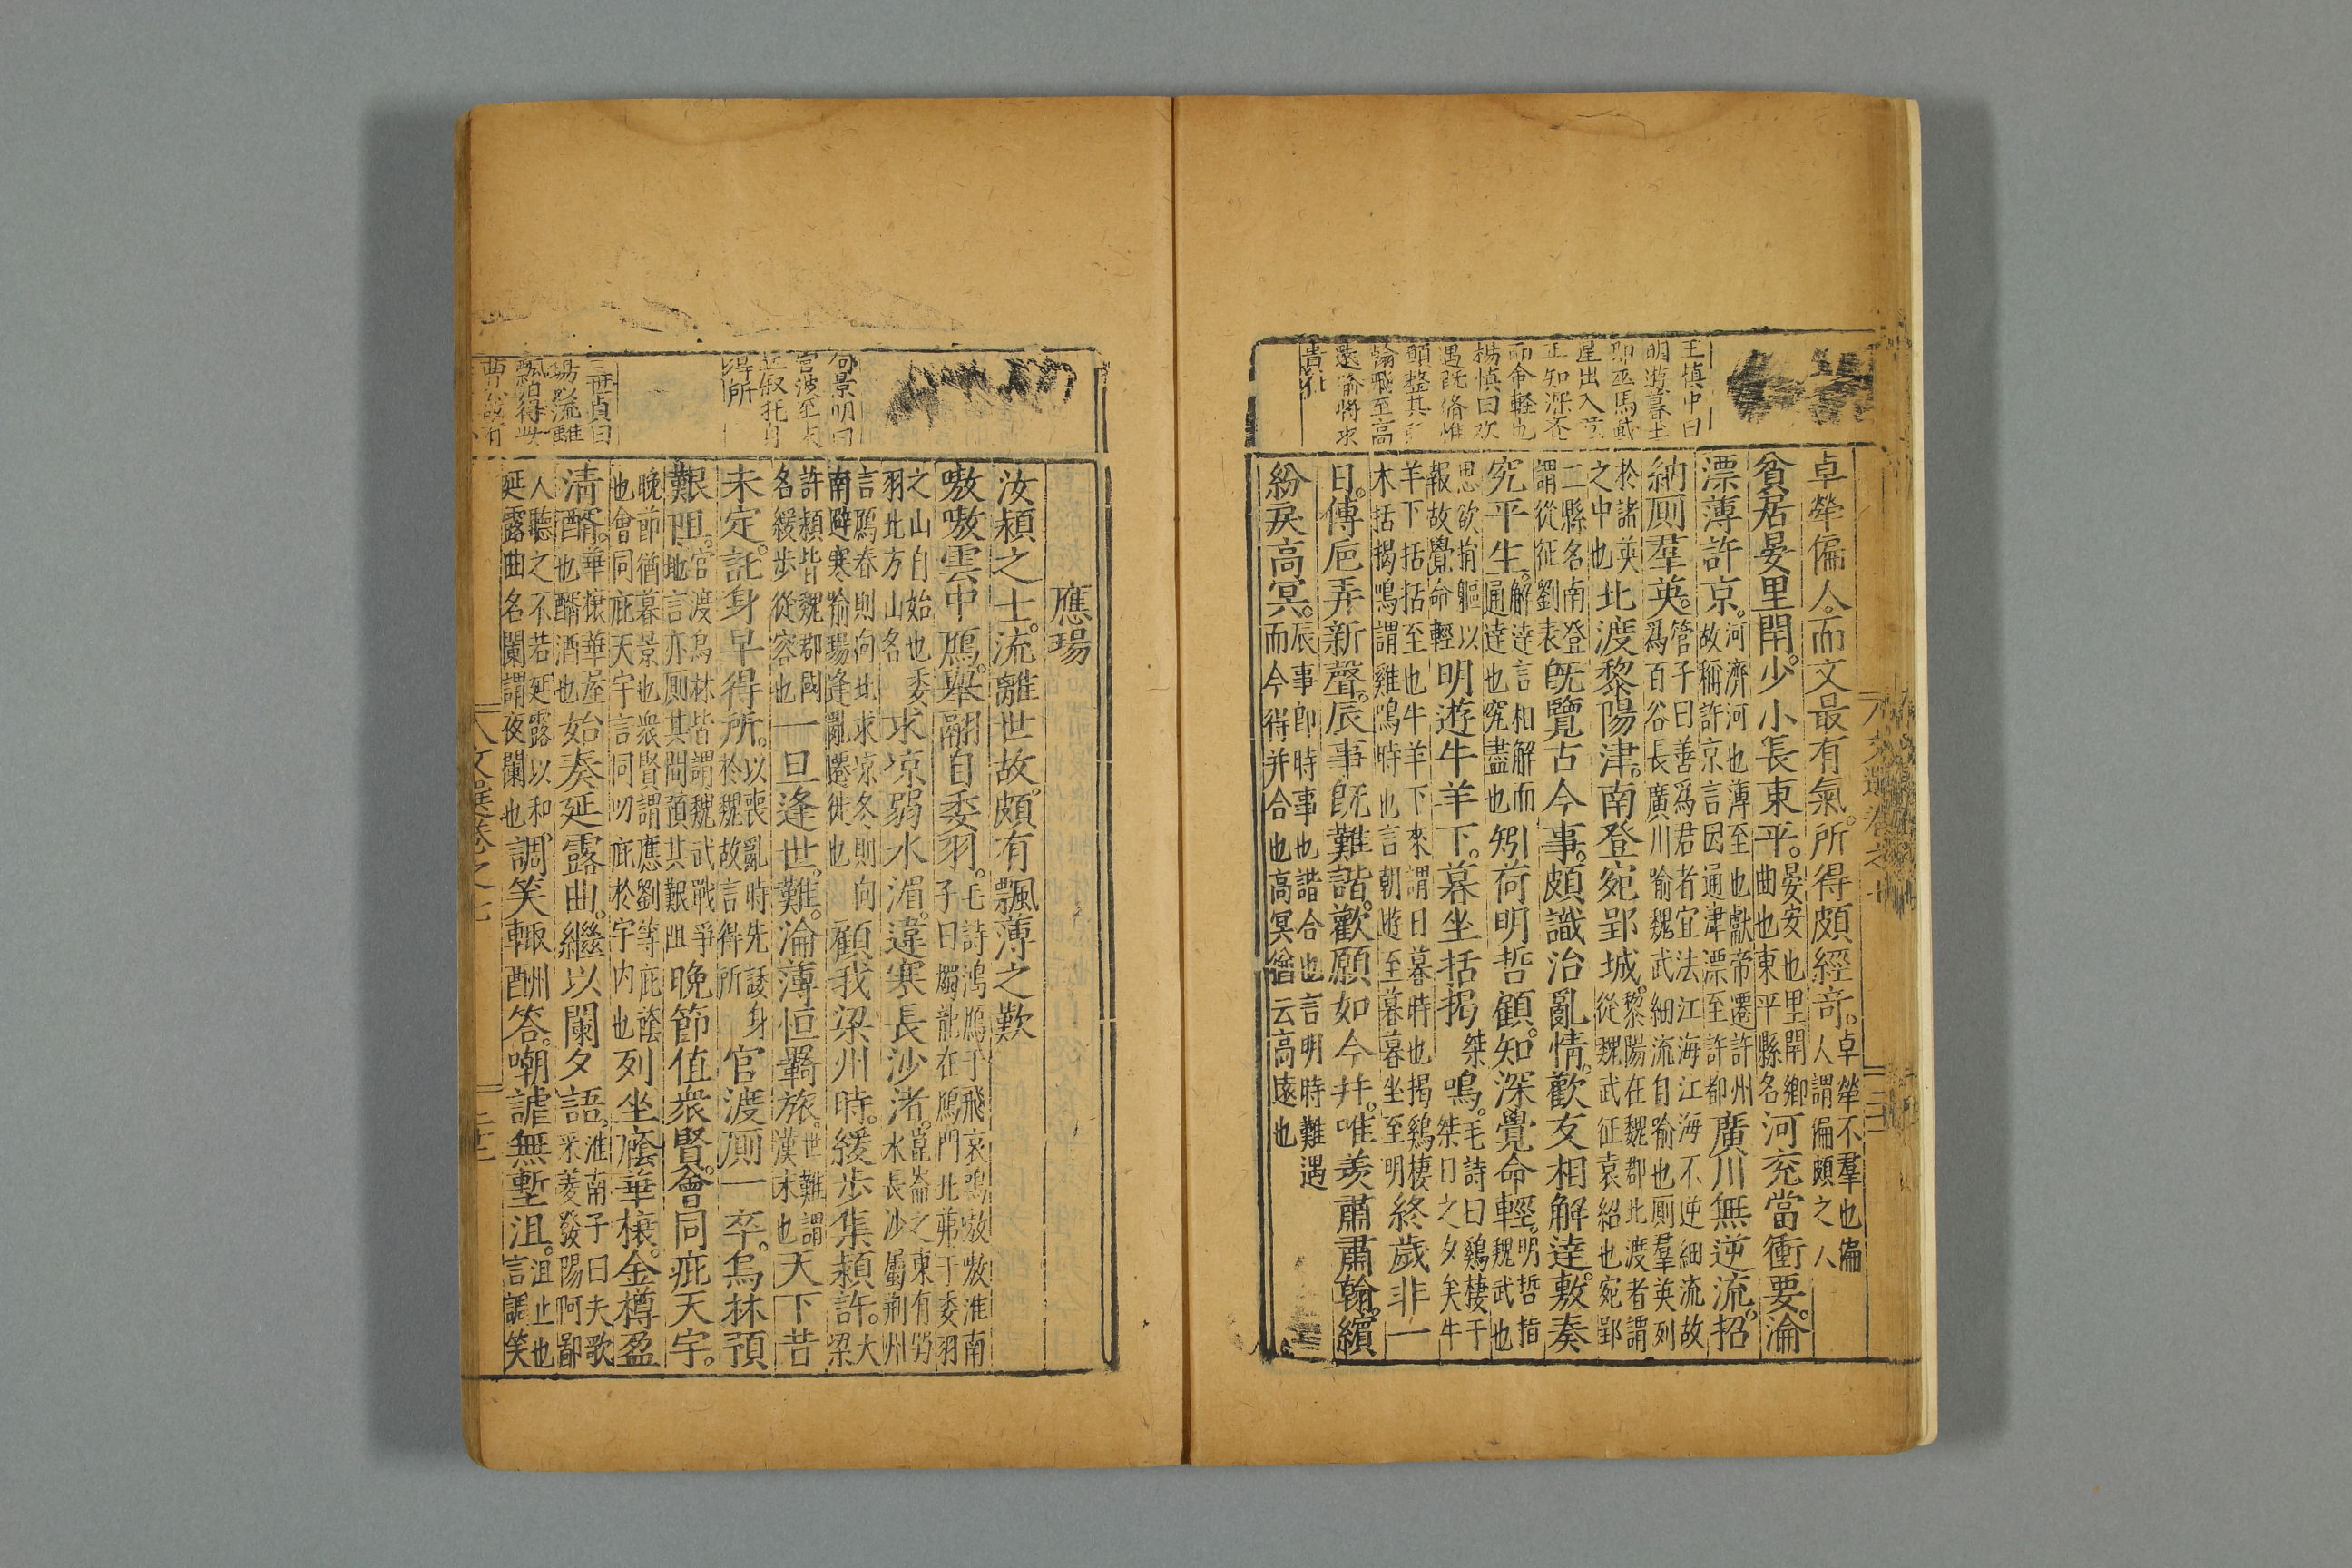 王慎中曰
明遊暮坐
即巫馬戴
星出入意
正知深
而命輕也
楊慎曰歡
遇既偹惟
願整其
翰飛至高
遠喻將求
貴仕
卓犖偏人。而文最有氣。所得頗經奇。卓犖不羣也偏人謂偏頗之人
貧居晏里閈。少小長東平。晏安也里閈鄉曲也東平縣名河兖當衝要。淪
漂薄許京。河濟河也薄至也獻帝遷許州故稱許京言因通津漂至許都廣川無逆流。招
納厠羣英。管子曰善爲君者宜法江海江海不逆細流故爲百谷長廣川喻魏武細流自喻也厠羣英列
於諸英之中也北渡黎陽津。南登宛郢城。黎陽在魏郡北渡者謂從魏武征袁紹也宛郢
二縣名南登謂從征劉表旣覽古今事。頗識治亂情。歡友相解逹。敷奏
究平生。解逹言相解而通逹也究盡也矧荷明哲顧。知深覺命輕。明哲指魏武也
思欲捐軀以報故覺命輕明遊牛羊下。暮坐括揭桀鳴。毛詩曰鷄棲于桀日之夕矣牛
羊下括括至也牛羊下來謂日暮時也揭鷄棲木括揭鳴謂雞鳴時也言朝遊至暮暮坐至明終歲非一
日。傳巵弄新聲。辰事旣難諧。歡願如今并。唯羨肅肅翰。繽
紛戾高冥。辰事卽時事也諧合也言明時難遇而今得并合也高冥猶云高遠也
文選卷之七
何景明曰
官渡至末
並叙托身
得所
王世貞曰
瑒以流離
飄泊得
應瑒
汝潁之士。流離世故。頗有飄薄之歎
嗷嗷雲中鴈。舉翮自委羽。毛詩鴻鴈于飛哀鳴嗷嗷淮南子曰燭龍在鴈門北蔽于委羽
之山自始也委羽北方山名求凉弱水湄。違寒長沙渚。崑崙之東有弱水長沙屬荆州
言鴈春則向北求凉冬則向南避寒喻瑒逢亂遷徙也顧我梁州時。緩步集潁許。大梁
許潁皆魏郡國名緩步從容也一旦逢世難。淪薄恒羇旅。世難謂漢末也天下昔
未定。託身早得所。以喪亂時先諉身於魏故言得所官渡厠一卒。烏林預
艱阻。官渡烏林皆謂魏武戰爭地言亦厠其間預其艱阻晚節值衆賢。會同庇天宇。
晚節猶暮景也衆賢謂應劉等庇䕃也會同庇天宇言同叨庇於宇内也列坐廕華榱。金樽盈
清醑。華榱華屋也醑酒也始奏延露曲。繼以闌夕語。淮南子曰夫歌采菱發陽阿鄙
人聽之不若延露以和延露曲名闌謂夜闌也調笑輙酬答。嘲謔無慙沮。沮止也言調笑
文選卷之七